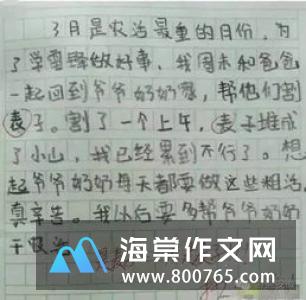 3月是农活最重的月份,为
了学雷锋做好事,我周末和爸爸
一起回到爷爷奶奶家,帮他们割
麦子。割了一个上午,麦子堆成
了小山,我已经累到不行了。想
起爷爷奶奶每天都要做这些粗活,
真辛苦。我以后要多帮爷爷奶奶
干
海棠作文网
www.800765.com